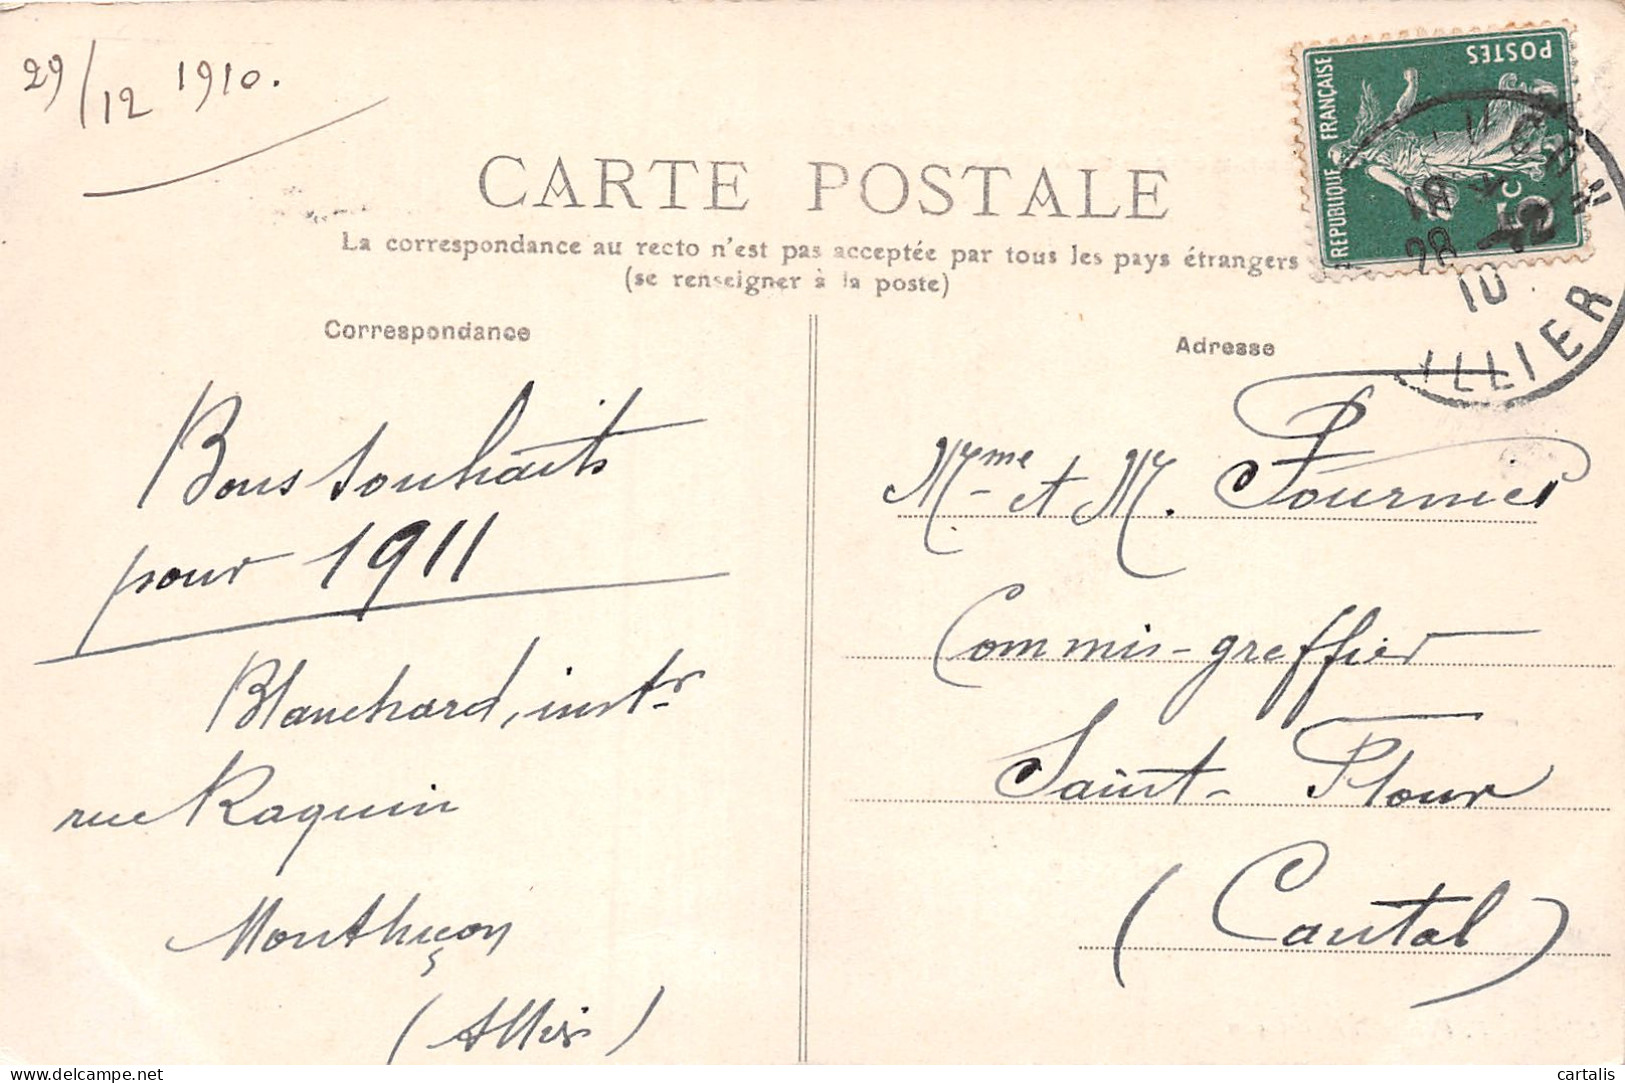 29/12 1910.
CARTE POSTALE
La correspondance au recto n'est pas acceptée par tous les pays étrangers
(se renseigner à la poste)
Correspondance
Bons souhaits
pour 1911
Blanchard, instr
rue Raquin
Montluçon
(Allier)
Adresse
Mme et M. Fournier
Commis-greffier
Saint-Flour
(Cantal)
REPUBLIQUE FRANÇAISE
POSTES
5c
18
28 12
10
LLIER
cartalis